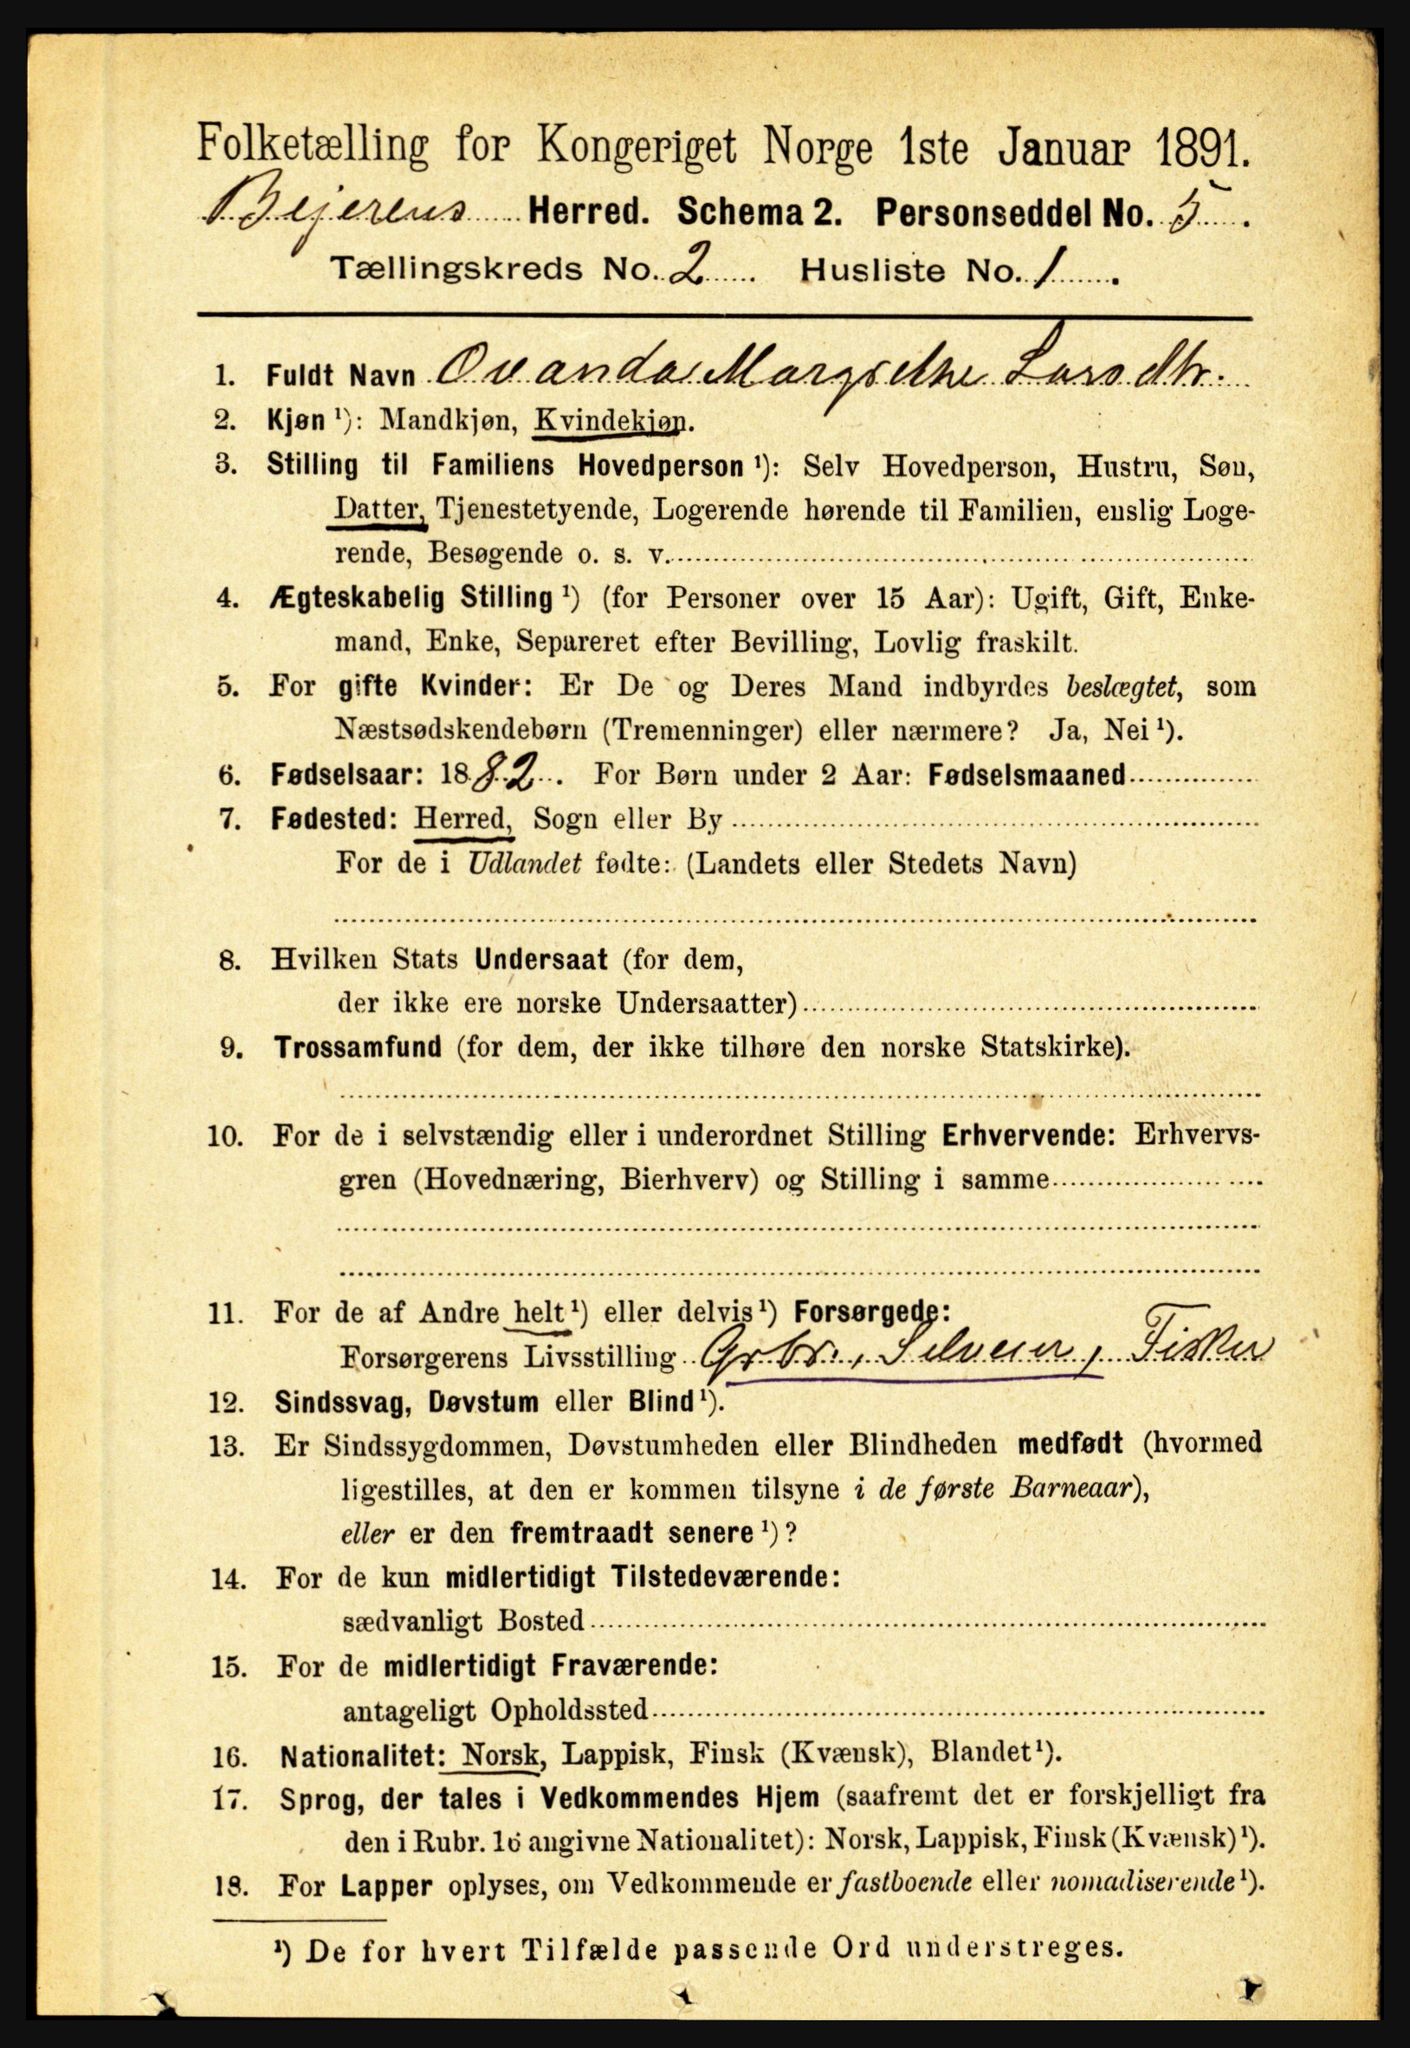 Folketælling for Kongeriget Norge 1ste Januar 1891.
Bejerens Herred. Schema 2. Personseddel No. 5.
Tællingskreds No. 2. Husliste No. 1.
1. Fuldt Navn Ovanda Margrethe Larsdtr.
2. Kjøn ¹): Mandkjøn, Kvindekjøn.
3. Stilling til Familiens Hovedperson ¹): Selv Hovedperson, Hustru, Søn,
Datter, Tjenestetyende, Logerende hørende til Familien, enslig Loge-
rende, Besøgende o. s. v.
4. Ægteskabelig Stilling ¹) (for Personer over 15 Aar): Ugift, Gift, Enke-
mand, Enke, Separeret efter Bevilling, Lovlig fraskilt.
5. For gifte Kvinder: Er De og Deres Mand indbyrdes beslægtet, som
Næstsødskendebørn (Tremenninger) eller nærmere? Ja, Nei ¹).
6. Fødselsaar: 1882. For Børn under 2 Aar: Fødselsmaaned
7. Fødested: Herred, Sogn eller By
For de i Udlandet fødte: (Landets eller Stedets Navn)
8. Hvilken Stats Undersaat (for dem,
der ikke ere norske Undersaatter)
9. Trossamfund (for dem, der ikke tilhøre den norske Statskirke).
10. For de i selvstændig eller i underordnet Stilling Erhvervende: Erhvervs-
gren (Hovednæring, Bierhverv) og Stilling i samme
11. For de af Andre helt ¹) eller delvis ¹) Forsørgede:
Forsørgerens Livsstilling Grbr., Selveier, Fisker
12. Sindssvag, Døvstum eller Blind ¹).
13. Er Sindssygdommen, Døvstumheden eller Blindheden medfødt (hvormed
ligestilles, at den er kommen tilsyne i de første Barneaar),
eller er den fremtraadt senere ¹)?
14. For de kun midlertidigt Tilstedeværende:
sædvanligt Bosted
15. For de midlertidigt Fraværende:
antageligt Opholdssted
16. Nationalitet: Norsk, Lappisk, Finsk (Kvænsk), Blandet ¹).
17. Sprog, der tales i Vedkommendes Hjem (saafremt det er forskjelligt fra
den i Rubr. 16 angivne Nationalitet): Norsk, Lappisk, Finsk (Kvænsk) ¹).
18. For Lapper oplyses, om Vedkommende er fastboende eller nomadiserende ¹).
¹) De for hvert Tilfælde passende Ord understreges.